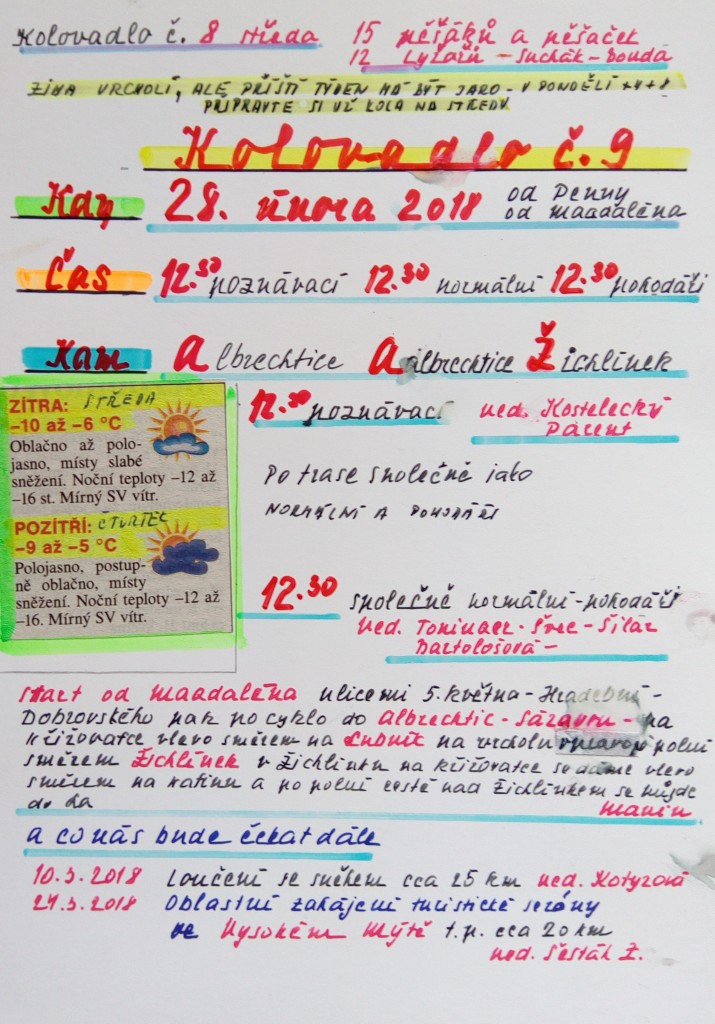 Kolovadlo č. 8 středa 15 pěšáků a pěšaček
12 Lyžařů - Suchák - Bouda
ZIMA VRCHOLÍ, ALE PŘÍŠTÍ TÝDEN MÁ BÝT JARO - V PONDĚLÍ +4+8
PŘIPRAVTE SI UŽ KOLA NA STŘEDU
Kolovadlo č.9
Kdy 28. února 2018 od Penny
od Magdaléna
Čas 12.30 poznávací 12.30 normální 12.30 pohodáři
Kam Albrechtice Albrechtice Žichlínek
ZÍTRA: STŘEDA
–10 až –6 °C
Oblačno až polo-
jasno, místy slabé
sněžení. Noční teploty –12 až
–16 st. Mírný SV vítr.
POZÍTŘÍ: ČTVRTEK
–9 až –5 °C
Polojasno, postup-
ně oblačno, místy
sněžení. Noční teploty –12 až
–16. Mírný SV vítr.
12.30 poznávací ved. Kostelecký
Pacent
Po trase společně jako
NORMÁLNÍ A POHODÁŘI
12.30 společně normální - pohodáři
Ved. Toninger - Švec - Šilar
Bartološová -
Start od Magdaléna ulicemi 5. května - Hradební -
Dobrovského pak po cyklo do Albrechtic - Sázavu - na
křižovatce vlevo směrem na Lubník na vrcholu vpravo polní
směrem Žichlínek v Žichlínku na křižovatce se dáme vlevo
směrem na Ratinu a po polní cestě nad Žichlínkem se půjde
do LA Manin
a co nás bude čekat dále
10.3.2018 Loučení se sněhem cca 25 km ved. Kotyzová
24.3.2018 Oblastní zahájení turistické sezóny
ve Vysokém Mýtě t.p. cca 20 km
ved. Šesták Z.